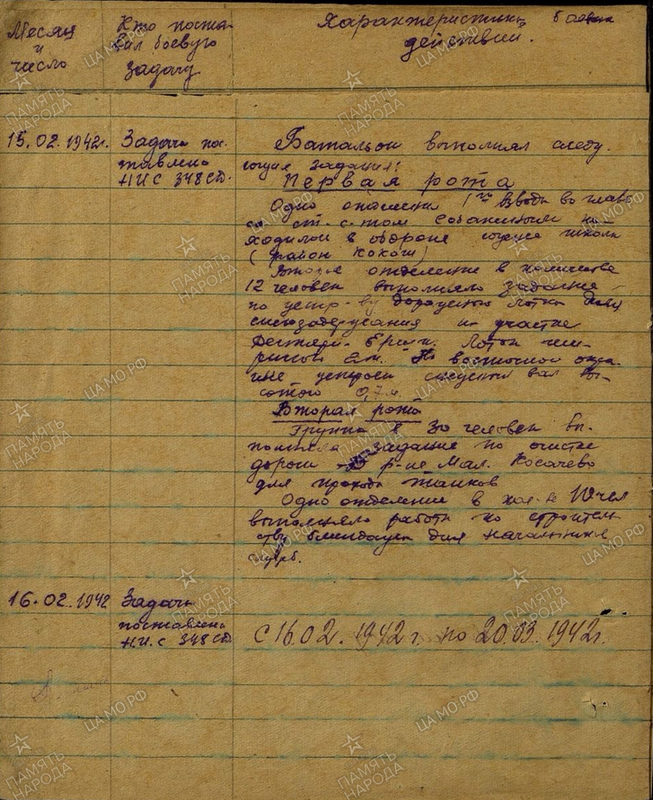 Месяц и число
Кто поста-
вил боевую
задачу
Характеристики боевых
действий.
15.02.1942г.
Задача пос-
тавлена
НИС 348 СД.
Батальон выполнял следу-
ющие задания:
Первая рота
Одно отделение 1го взвода во главе
ст. с-том на-
ходилось в обороне школа
(район Кокош)
Второе отделение в количестве
12 человек выполняло задание
по устр-ву
снегозадержания на участке
Лоток
На восточной окра-
ине устроен снежный вал вы-
сотою 0,7 м.
Вторая рота
Группа в 30 человек вы-
полняла задание по очистке
дороги р-не Мал. Косачево
для прохода танков
Одно отделение в кол-ве 10 чел
выполняло работы по строитель-
ству блиндажа для начальника
16.02.1942
Задача
поставлена
Н.И.С 348 СД
с 16.02.1942 г. по 20.03.1942г.
ПАМЯТЬ НАРОДА
ЦА МО.РФ